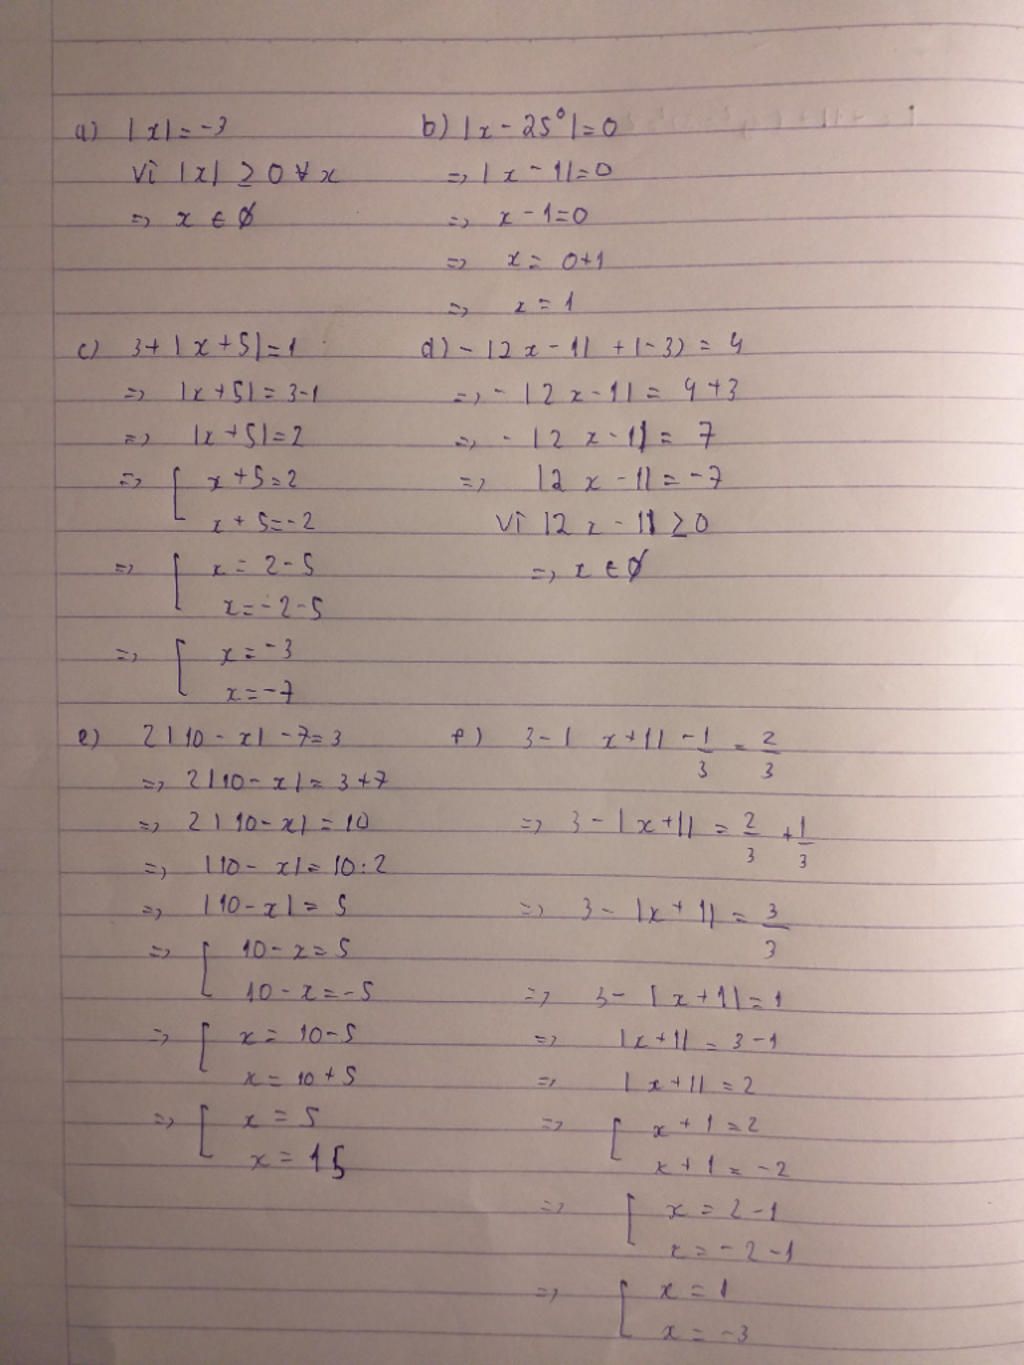 a) |x| = -3
Vì |x| ≥ 0 ∀ x
=> x ∈ ∅
b) |x - 25⁰| = 0
=> |x - 1| = 0
=> x - 1 = 0
=> x = 0 + 1
=> x = 1
c) 3 + |x + 5| = 1
=> |x + 5| = 3 - 1
=> |x + 5| = 2
=> [ x + 5 = 2
x + 5 = -2
=> [ x = 2 - 5
x = -2 - 5
=> [ x = -3
x = -7
d) - |2x - 1| + (-3) = 4
=> - |2x - 1| = 4 + 3
=> - |2x - 1| = 7
=> |2x - 1| = -7
Vì |2x - 1| ≥ 0
=> x ∈ ∅
e) 2|10 - x| - 7 = 3
=> 2|10 - x| = 3 + 7
=> 2|10 - x| = 10
=> |10 - x| = 10 : 2
=> |10 - x| = 5
=> [ 10 - x = 5
10 - x = -5
=> [ x = 10 - 5
x = 10 + 5
=> [ x = 5
x = 15
f) 3 - |x + 1| - 1/3 = 2/3
=> 3 - |x + 1| = 2/3 + 1/3
=> 3 - |x + 1| = 3/3
=> 3 - |x + 1| = 1
=> |x + 1| = 3 - 1
=> |x + 1| = 2
=> [ x + 1 = 2
x + 1 = -2
=> [ x = 2 - 1
x = -2 - 1
=> [ x = 1
x = -3